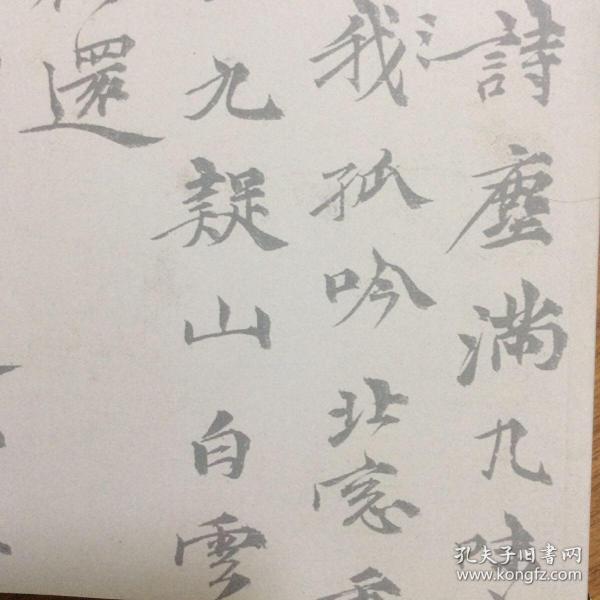 詩塵滿九
我孤吟北窓
九疑山白雲
還
孔夫子旧书网
www.kongfz.com